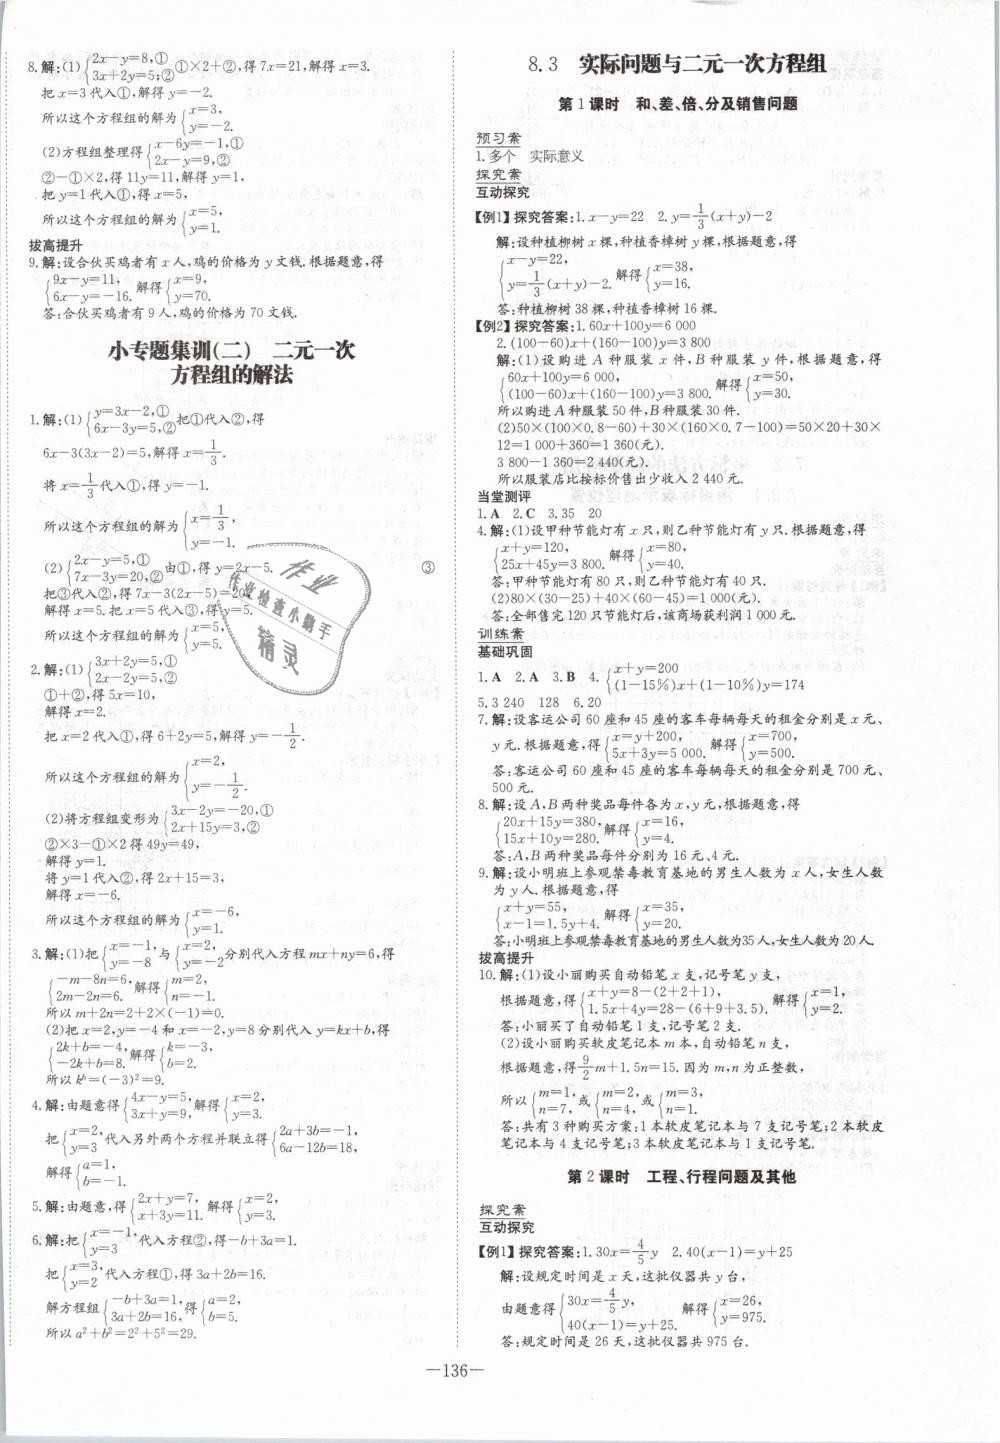 8.解:(1){2x-y=8,① 3x+2y=5;② ①×2+②,得7x=21,解得x=3.
把x=3代入①,解得y=-2.
所以这个方程组的解为{x=3, y=-2.
(2)方程组整理得{x-6y=-1,① 2x-y=9,②
②-①×2,得11y=11,解得y=1,
把y=1代入①,得x=5,
所以这个方程组的解为{x=5, y=1.
拔高提升
9.解:设合伙买鸡者有x人,鸡的价格为y文钱.根据题意,得
{9x-y=11, 6x-y=-16. 解得{x=9, y=70.
答:合伙买鸡者有9人,鸡的价格为70文钱.
小专题集训(二) 二元一次
方程组的解法
1.解:(1){y=3x-2,① 6x-3y=5,② 把①代入②,得
6x-3(3x-2)=5,解得x=1/3.
将x=1/3代入①,得y=-1.
所以这个方程组的解为{x=1/3, y=-1.
(2){2x-y=5,① 7x-3y=20,② 由①,得y=2x-5. ③
把③代入②,得7x-3(2x-5)=20,
解得x=5.把x=5代入③,得y=5.
所以这个方程组的解为{x=5, y=5.
2.解:(1){3x+2y=5,① 2x-2y=5,②
①+②,得5x=10,
解得x=2.
把x=2代入①,得6+2y=5,解得y=-1/2.
所以这个方程组的解为{x=2, y=-1/2.
(2)将方程组变形为{3x-2y=-20,① 2x+15y=3,②
②×3-①×2得49y=49,
解得y=1.
将y=1代入②,得2x+15=3,
解得x=-6.
所以这个方程组的解为{x=-6, y=1.
3.解:(1)把{x=-1, y=-8与{x=2, y=-2分别代入方程mx+ny=6,得
{-m-8n=6, 2m-2n=6. 解得{m=2, n=-1.
所以m+2n=2+2×(-1)=0.
(2)把x=2,y=-4和x=-2,y=8分别代入y=kx+b,得
{2k+b=-4, -2k+b=8. 解得{k=-3, b=2.
所以kᵇ=(-3)²=9.
4.解:由题意得{4x-y=5, 3x+y=9, 解得{x=2, y=3.
把{x=2, y=3代入另外两个方程并联立得{2a+3b=-1, 6a-12b=18,
解得{a=1, b=-1.
5.解:由题意,得{2x+y=7, x+3y=11. 解得{x=2, y=3.
6.解:把{x=-1, y=3代入方程②,得-b+3a=1.
把{x=3, y=2代入方程①,得3a+2b=16.
解方程组{-b+3a=1, 3a+2b=16, 得{a=2, b=5.
所以a²+b²=2²+5²=29.
8.3 实际问题与二元一次方程组
第1课时 和、差、倍、分及销售问题
预习案
1.多个 实际意义
探究案
互动探究
【例1】探究答案:1.x-y=22 2.y=1/3(x+y)-2
解:设种植柳树x棵,种植香樟树y棵,根据题意,得
{x-y=22, y=1/3(x+y)-2. 解得{x=38, y=16.
答:种植柳树38棵,种植香樟树16棵.
【例2】探究答案:1.60x+100y=6 000
2.(100-60)x+(160-100)y=3 800
解:(1)设购进A种服装x件,B种服装y件,根据题意,得
{60x+100y=6 000, (100-60)x+(160-100)y=3 800. 解得{x=50, y=30.
所以购进A种服装50件,B种服装30件.
(2)50×(100×0.8-60)+30×(160×0.7-100)=50×20+30×
12=1 000+360=1 360(元).
3 800-1 360=2 440(元).
所以服装店比按标价售出少收入2 440元.
当堂测评
1.A 2.C 3.35 20
4.解:(1)设甲种节能灯有x只,则乙种节能灯有y只.根据题意,得
{x+y=120, 25x+45y=3 800. 解得{x=80, y=40.
答:甲种节能灯有80只,则乙种节能灯有40只.
(2)80×(30-25)+40×(60-45)=1 000(元).
答:全部售完120只节能灯后,该商场获利润1 000元.
训练案
基础巩固
1.A 2.A 3.B 4.{x+y=200 (1-15%)x+(1-10%)y=174
5.3 240 128 6.20
7.解:设客运公司60座和45座的客车每辆每天的租金分别是x元、
y元.根据题意,得{x=y+200, 5x+3y=5 000. 解得{x=700, y=500.
答:客运公司60座和45座的客车每辆每天的租金分别是700元、
500元.
8.解:设A,B两种奖品每件各为x,y元,根据题意,得
{20x+15y=380, 15x+10y=280. 解得{x=16, y=4.
答:A,B两种奖品每件分别为16元、4元.
9.解:设小明班上参观禁毒教育基地的男生人数为x人,女生人数
为y人.根据题意,得
{x+y=55, x-1=1.5y+4. 解得{x=35, y=20.
答:小明班上参观禁毒教育基地的男生人数为35人,女生人数为20人.
拔高提升
10.解:(1)设小丽购买自动铅笔x支,记号笔y支,
根据题意,得{x+y=8-(2+2+1), 1.5x+4y=28-(6+9+3.5). 解得{x=1, y=2.
答:小丽买了自动铅笔1支,记号笔2支.
(2)设小丽购买软皮笔记本m本,自动铅笔n支,
根据题意,得9/2m+1.5n=15.因为m,n为正整数,
所以{m=1, n=7,或{m=2, n=4,或{m=3, n=1.
答:共有3种购买方案:1本软皮笔记本与7支记号笔;2本软皮
笔记本与4支记号笔;3本软皮笔记本与1支记号笔.
第2课时 工程、行程问题及其他
探究案
互动探究
【例1】探究答案:1.30x=4/5y 2.40(x-1)=y+25
解:设规定时间是x天,这批仪器共y台,
由题意得{30x=4/5y, 40(x-1)=y+25. 解得{x=26, y=975.
答:规定时间是26天,这批仪器共975台.
—136—
作业
作业检查小助手
精灵